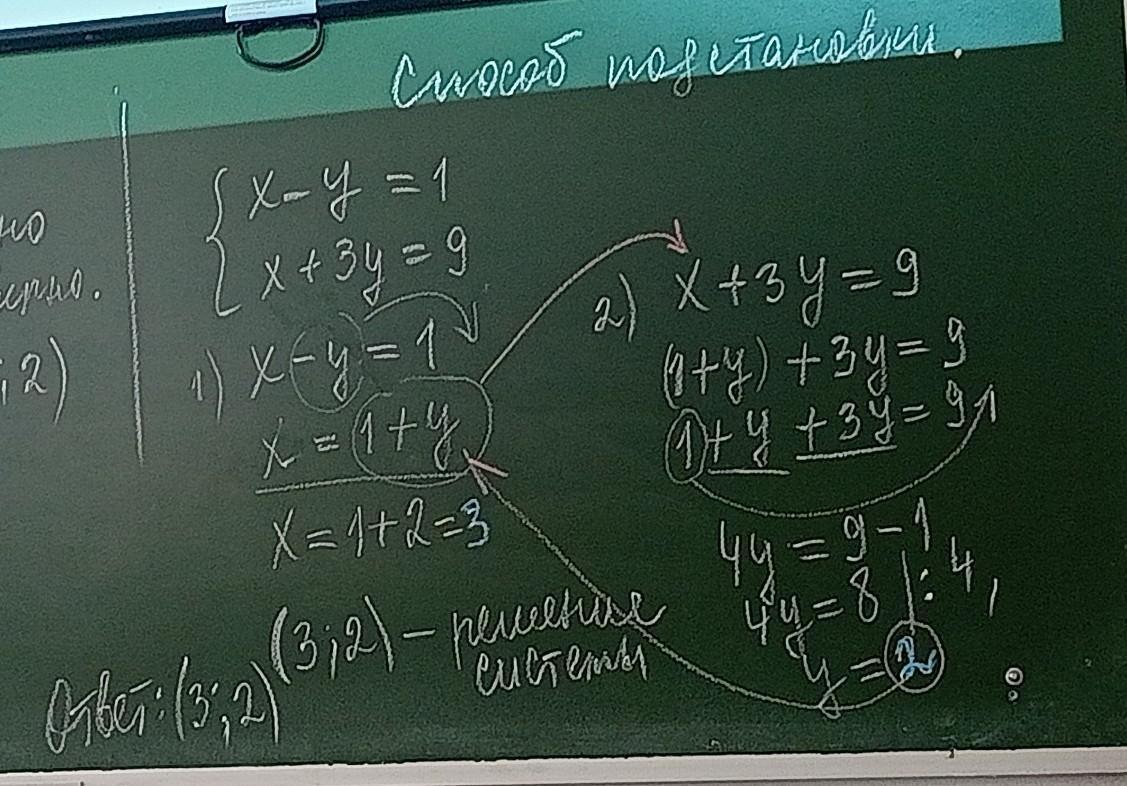 Способ подстановки.
но
; 2)
x - y = 1
x + 3y = 9
1) x - y = 1
x = 1 + y
x = 1 + 2 = 3
(3; 2) – решение
системы
Ответ: (3; 2)
2) x + 3y = 9
(1 + y) + 3y = 9
1 + y + 3y = 9
4y = 9 - 1
4y = 8 | : 4,
y = 2